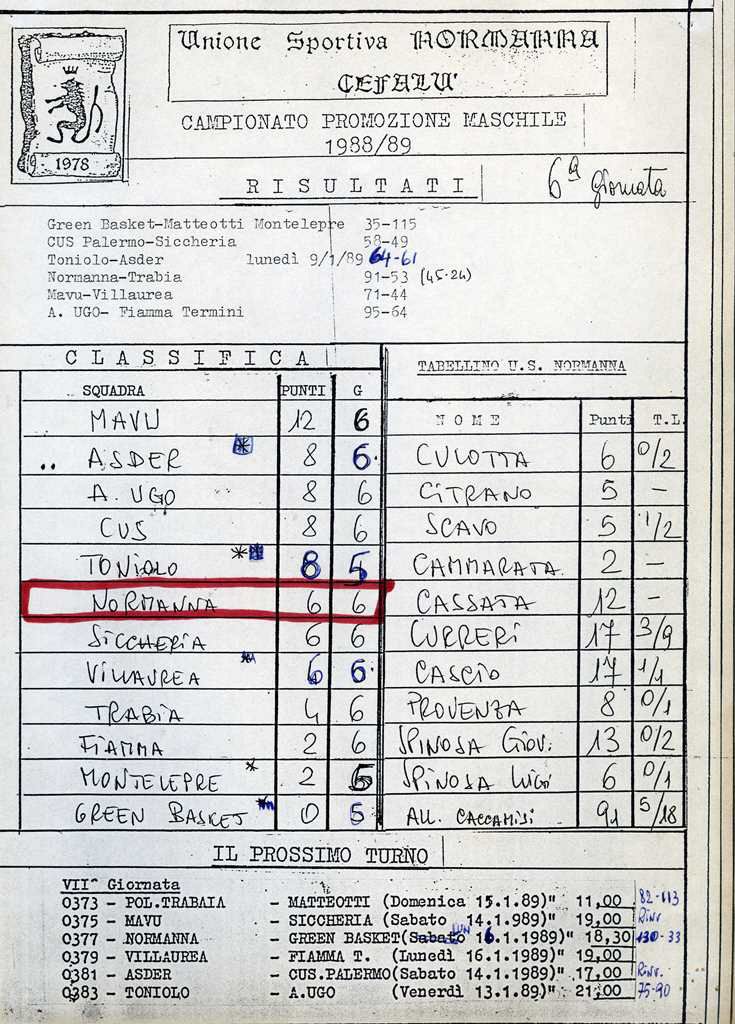 Unione Sportiva NORMANNA
CEFALU'
1978
CAMPIONATO PROMOZIONE MASCHILE
1988/89
RISULTATI
6ª Giornata
Green Basket-Matteotti Montelepre 35-115
CUS Palermo-Siccheria 58-49
Toniolo-Asder lunedì 9/1/89 64-61
Normanna-Trabia 91-53 (45-24)
Mavu-Villaurea 71-44
A. UGO- Fiamma Termini 95-64
CLASSIFICA
SQUADRA PUNTI G
MAVU 12 6
.. ASDER * 8 6
A. UGO 8 6
CUS 8 6
TONIOLO ** 8 5
NORMANNA 6 6
SICCHERIA 6 6
VILLAUREA * 6 6
TRABIA 4 6
FIAMMA 2 6
MONTELEPRE * 2 5
GREEN BASKET * 0 5
TABELLINO U.S. NORMANNA
NOME Punti T.L.
CULOTTA 6 0/2
CITRANO 5 -
SCAVO 5 1/2
CAMMARATA 2 -
CASSATA 12 -
CURRERI 17 3/9
CASCIO 17 1/1
PROVENZA 8 0/1
SPINOSA GIOV. 13 0/2
SPINOSA LUIGI 6 0/1
ALL. CACCAMISI 91 5/18
IL PROSSIMO TURNO
VII^ Giornata
0373 - POL.TRABAIA - MATTEOTTI (Domenica 15.1.89)" 11,00 82-113
0375 - MAVU - SICCHERIA (Sabato 14.1.989)" 19,00 Rinv
0377 - NORMANNA - GREEN BASKET(Sabato LUN 16.1.1989)" 18,30 130-33
0379 - VILLAUREA - FIAMMA T. (Lunedì 16.1.1989)" 19,00
0381 - ASDER - CUS.PALERMO(Sabato 14.1.1989)" 17,00 Rinv.
0383 - TONIOLO - A.UGO (Venerdì 13.1.89)" 21,00 75-90